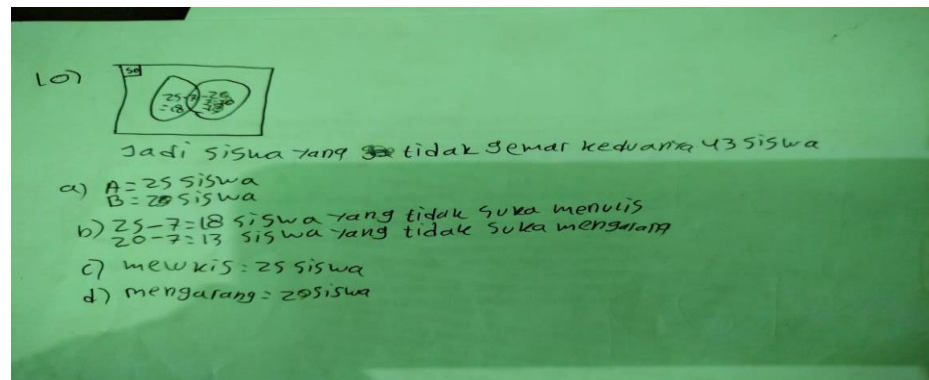 10)
50
25-7
=18
Jadi siswa yang tidak gemar keduanya 43 siswa
a) A = 25 siswa
B = 20 siswa
b) 25-7=18 siswa yang tidak suka menulis
20-7=13 siswa yang tidak suka mengarang
c) melukis : 25 siswa
d) mengarang = 20 siswa